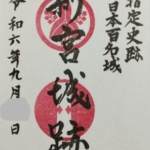 指定史跡
日本百名城
新宮城跡
令和六年九月 日